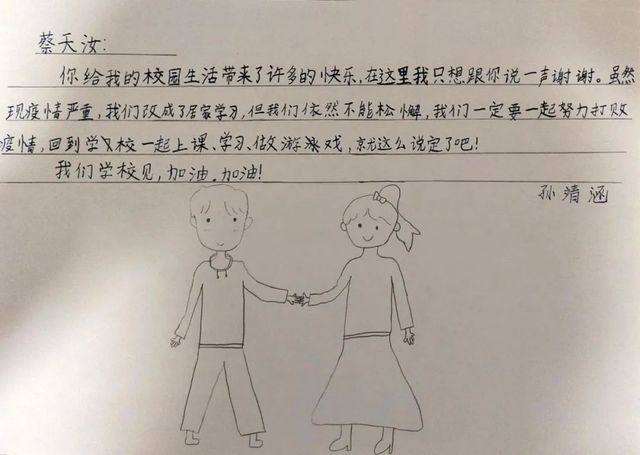 蔡天汝:
你给我的校园生活带来了许多的快乐,在这里我只想跟你说一声谢谢。虽然
现疫情严重,我们改成了居家学习,但我们依然不能松懈,我们一定要一起努力打败
疫情,回到学校一起上课、学习、做游戏,就这么说定了吧!
我们学校见,加油,加油!
孙清涵